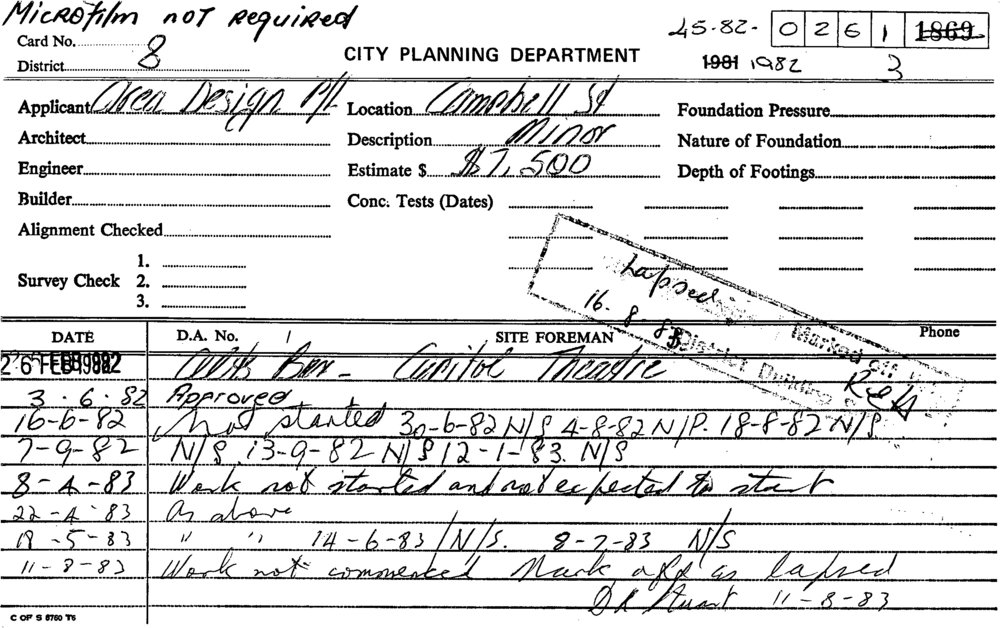 Microfilm not required
45-82- 0 2 6 1 1869
Card No. 8
District
CITY PLANNING DEPARTMENT
1981 1982 3
Applicant Area Design P/L Location Campbell St Foundation Pressure
Architect Description Minor Nature of Foundation
Engineer Estimate $ $7,500 Depth of Footings
Builder Conc. Tests (Dates)
Alignment Checked
1.
Survey Check 2.
3.
Lapsed
16-8-83
Marked off
District Building
DATE D.A. No. SITE FOREMAN Phone
26 FEB 1982 Capitol Theatre
3.6.82 Approved
16-6-82 Not started 30-6-82 N/S 4-8-82 N/P. 18-8-82 N/S
7-9-82 N/S 13-9-82 N/S 12-1-83. N/S
8-4-83 Work not started and not expected to start
22-4-83 As above
18-5-83 " " 14-6-83 N/S. 8-7-83 N/S
11-8-83 Work not commenced Mark off as lapsed
D R Stuart 11-8-83
C OF S 8760 T5